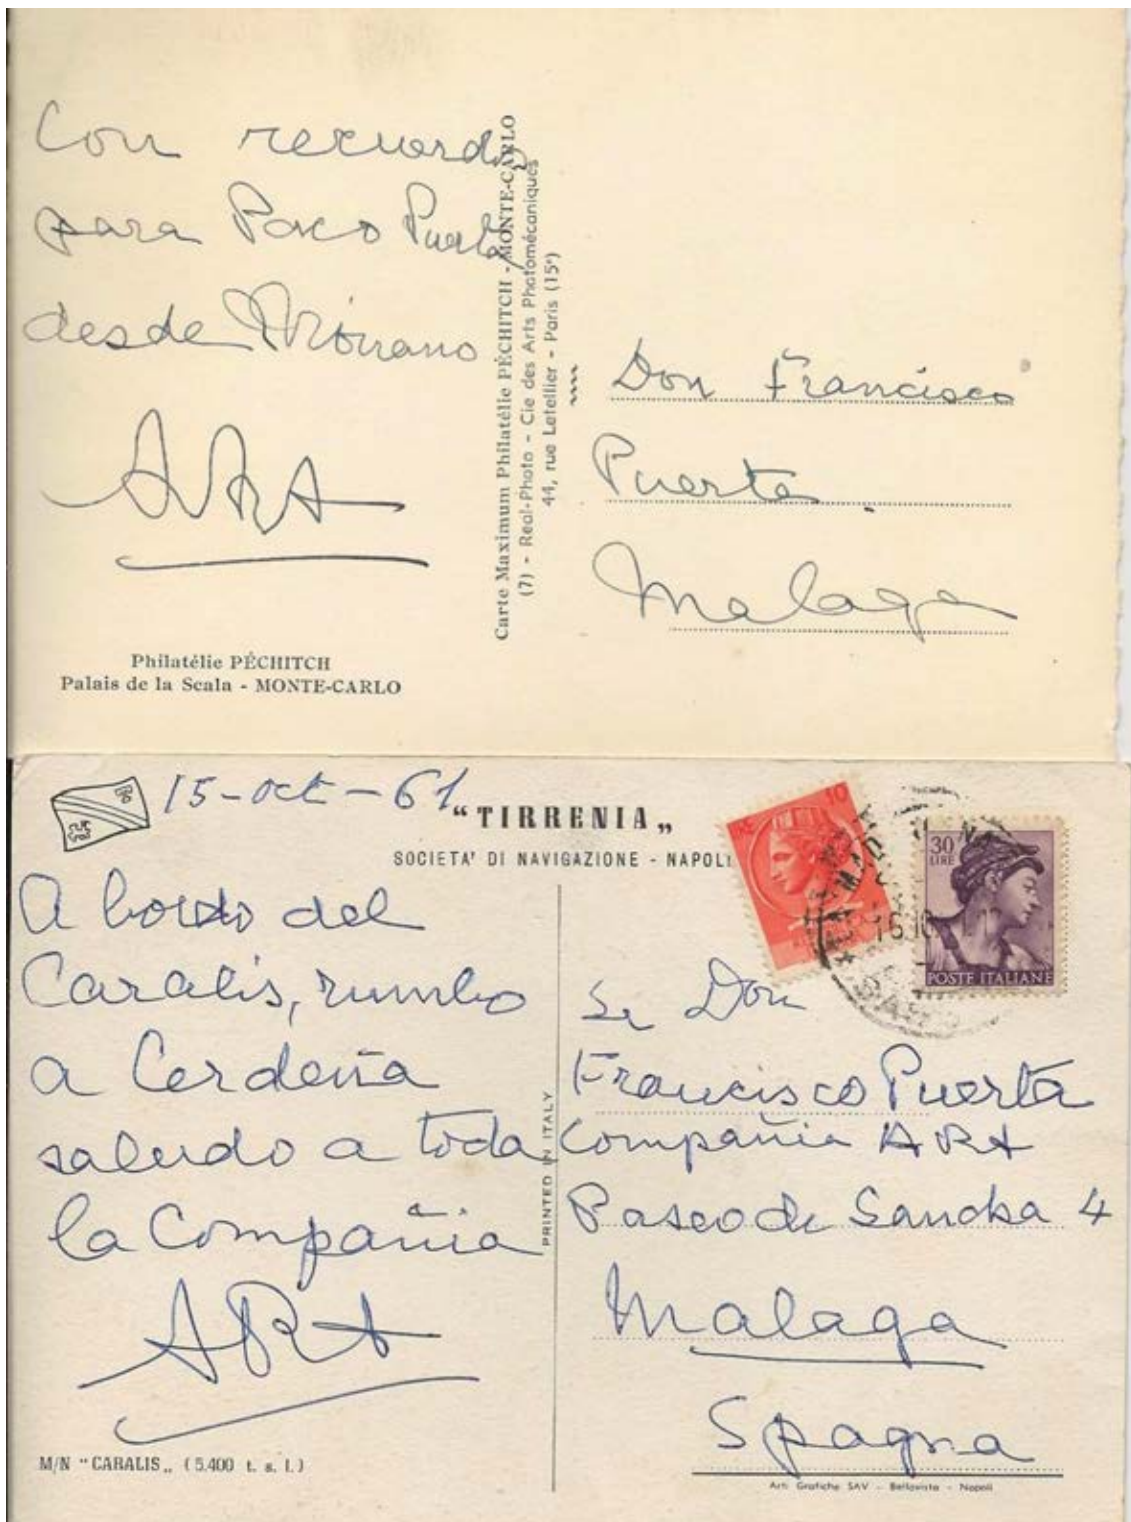 Con recuerdos
para Paco Puerta
desde Mónaco
ARA
Philatélie PÉCHITCH
Palais de la Scala - MONTE-CARLO
Carte Maximum Philatélie PÉCHITCH - MONTE-CARLO
(7) - Real-Photo - Cie des Arts Photomécaniques
44, rue Letellier - Paris (15e)
Don Francisco
Puerta
Malaga
15-oct-61
"TIRRENIA„
SOCIETA' DI NAVIGAZIONE - NAPOLI
A bordo del
Caralis, rumbo
a Cerdeña
saludo a toda
la Compañia
ARA
M/N "CARALIS„ (5.400 t. s. l.)
PRINTED IN ITALY
10
30
LIRE
POSTE ITALIANE
Sr Don
Francisco Puerta
Compañia ARA
Paseo de Sancha 4
Malaga
Spagna
Arti Grafiche SAV - Bellavista - Napoli